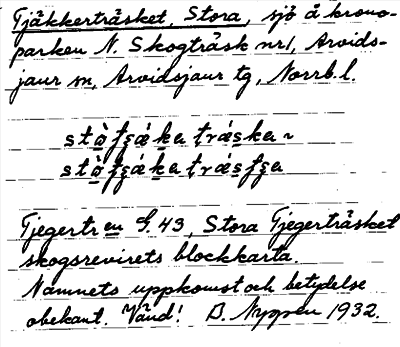 Tjäkkerträsket, Stora, sjö å krono-
parken N. Skogträsk nr1, Arvids-
jaur sn, Arvidsjaur tg, Norrb. l.
Tjegertr en G. 43, Stora Tjegerträsket
skogsrevirets blockkarta.
Namnets uppkomst och betydelse
obekant. Vänd! D. Nygren 1932.